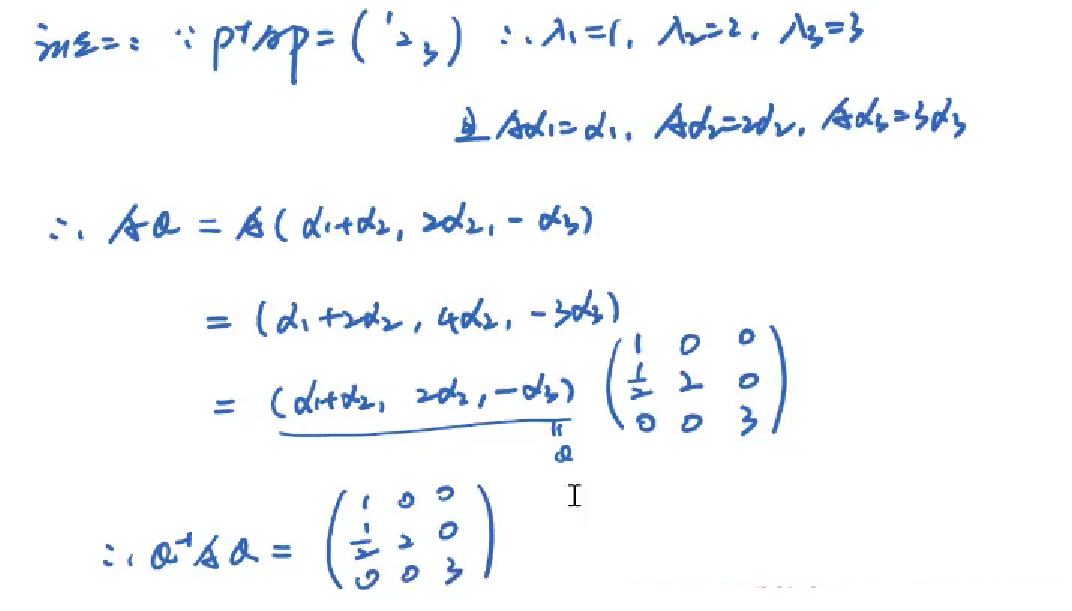 法二: ∵ P⁻¹AP = (1 2 3) ∴ λ₁=1, λ₂=2, λ₃=3
且 Aα₁=α₁, Aα₂=2α₂, Aα₃=3α₃
∴ AQ = A(α₁+α₂, 2α₂, -α₃)
= (α₁+2α₂, 4α₂, -3α₃)
= (α₁+α₂, 2α₂, -α₃) (1 0 0
1/2 2 0
0 0 3)
Q
∴ Q⁻¹AQ = (1 0 0
1/2 2 0
0 0 3)